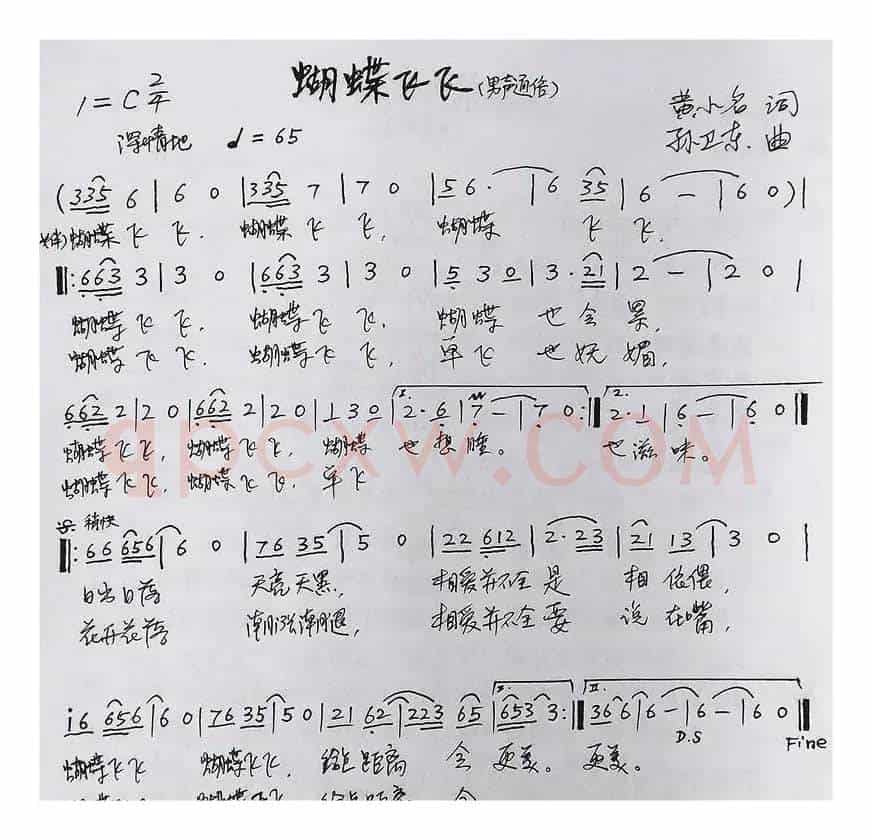 蝴蝶飞飞(男声通俗)
1=C 2/4
黄小名 词
深情地 ♩=65
孙卫东 曲
(335 6 | 6 0 | 335 7 | 7 0 | 56· | 6 35 | 6 — | 6 0)|
(伴)蝴蝶飞飞. 蝴蝶飞飞, 蝴蝶飞飞.
‖:663 3 | 3 0 | 663 3 | 3 0 | 5 3 0 | 3·21 | 2 — | 2 0 |
蝴蝶飞飞, 蝴蝶飞飞, 蝴蝶也会累,
蝴蝶飞飞. 蝴蝶飞飞, 单飞也妩媚,
662 2 | 2 0 | 662 2 | 2 0 | 1 3 0 | 1. 2·6 | 7 — | 7 0 :‖ 2. 2·1 | 6 — | 6 0 ‖
蝴蝶飞飞, 蝴蝶飞飞, 蝴蝶也想睡。 也滋味。
蝴蝶飞飞, 蝴蝶飞飞. 单飞
稍快
‖:66 656 | 6 0 | 76 35 | 5 0 | 22 612 | 2·23 | 21 13 | 3 0 |
日出日落 天亮天黑, 相爱并不全是相依偎,
花开花落 潮涨潮退, 相爱并不全要说在嘴,
i6 656 | 6 0 | 76 35 | 5 0 | 21 62 | 223 65 | I. 653 3 :‖ II. 36 6 | 6 — | 6 — | 6 0 ‖
D.S
Fine
蝴蝶飞飞 蝴蝶飞飞, 给点距离会更美。 更美。